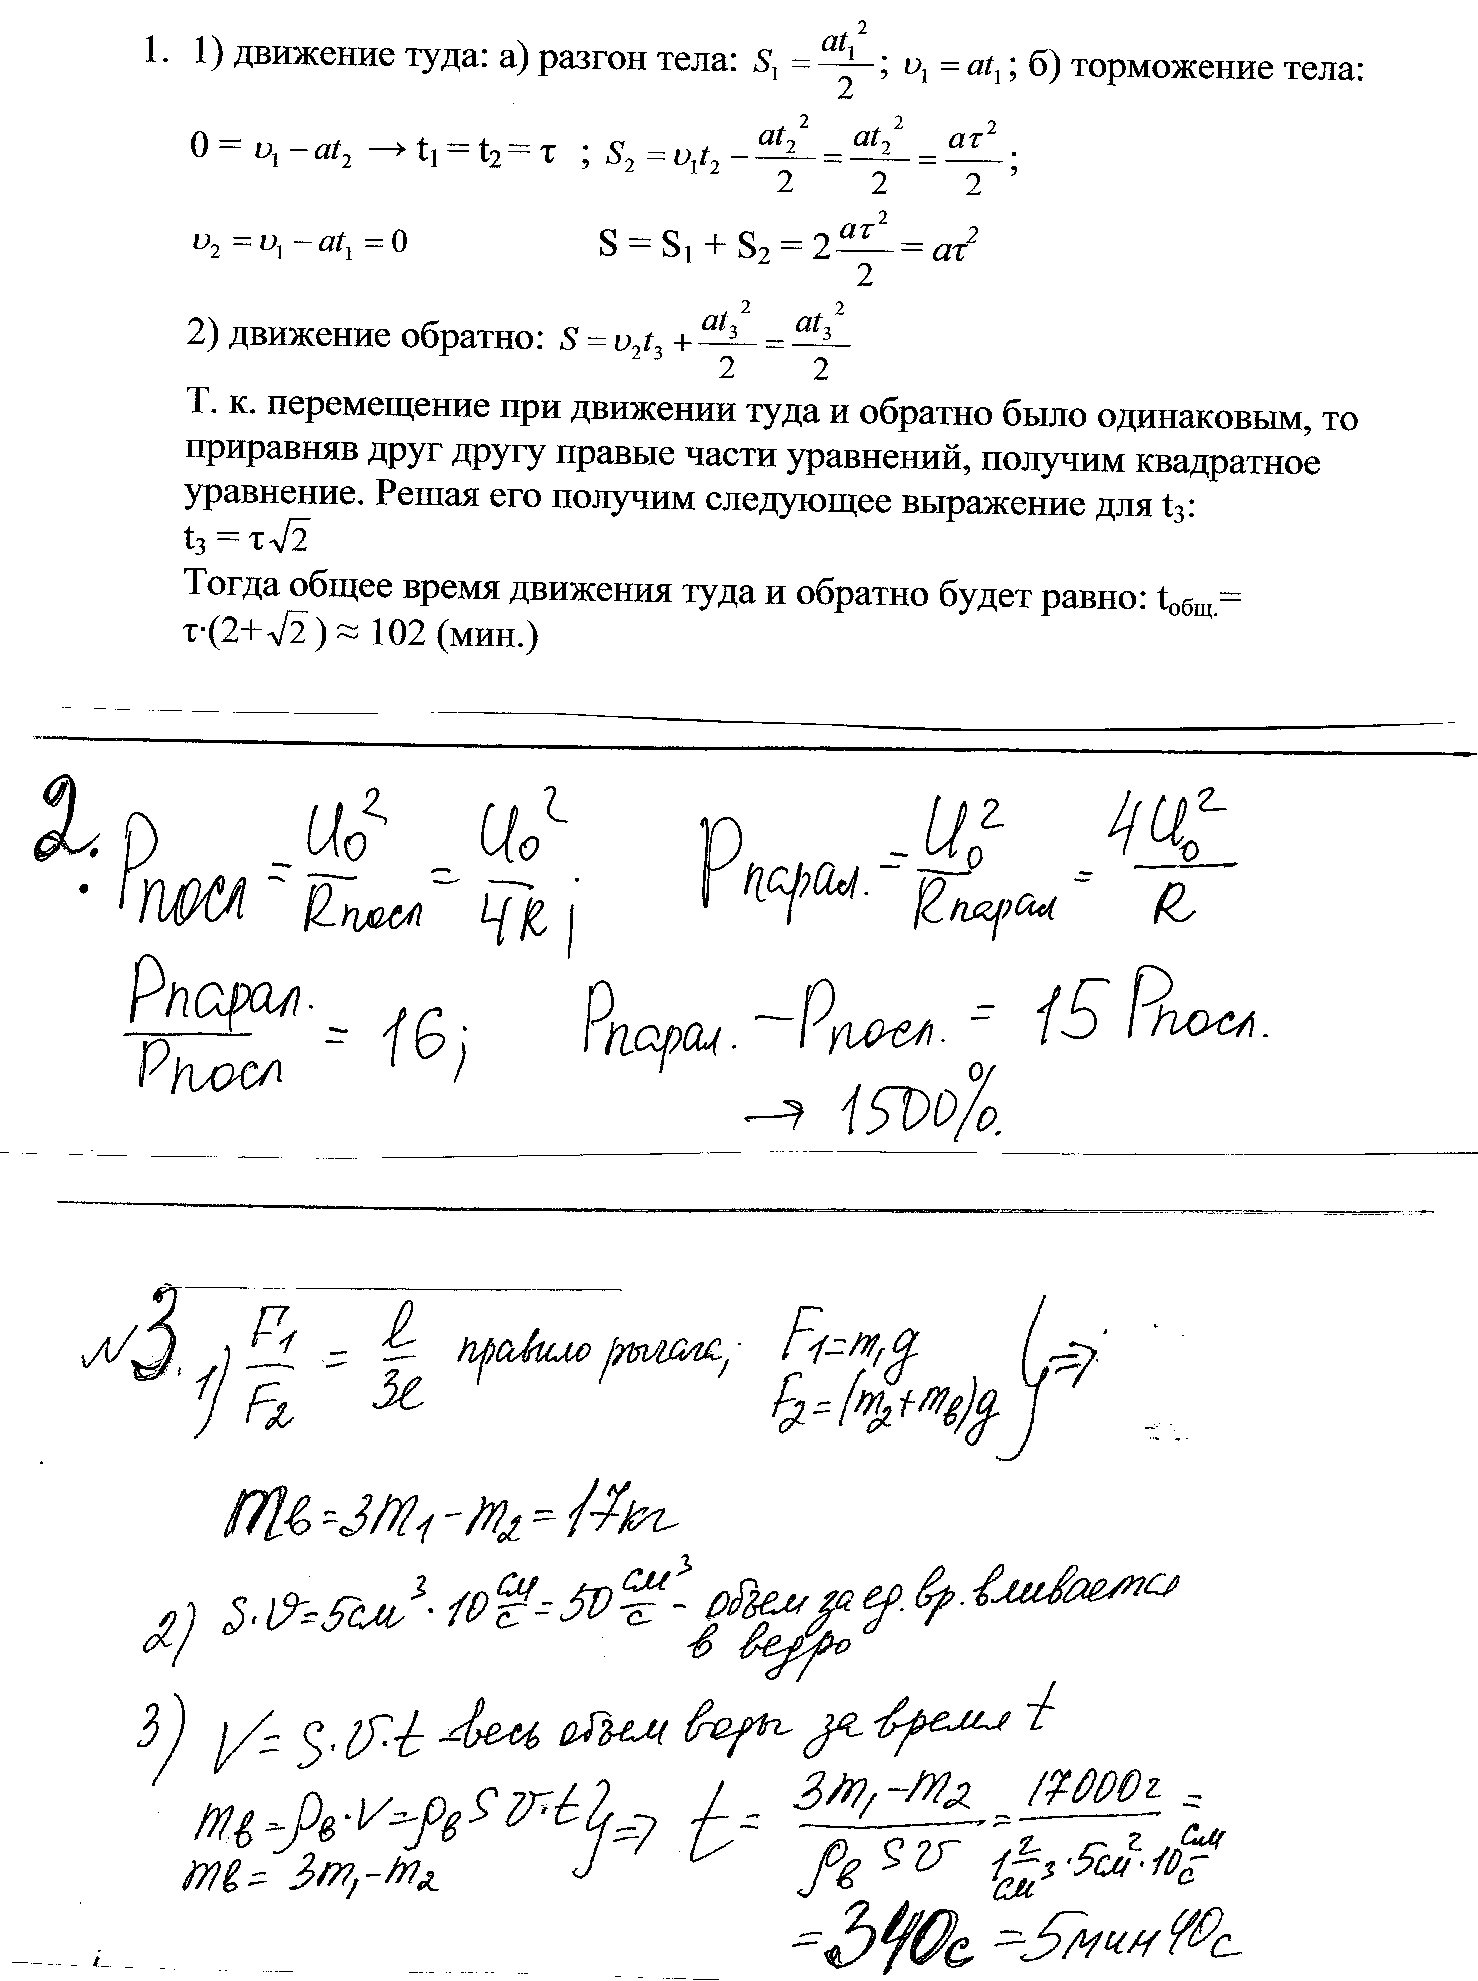 1. 1) движение туда: а) разгон тела: S₁ = at₁²/2; υ₁ = at₁; б) торможение тела:
0 = υ₁ − at₂ → t₁ = t₂ = τ ; S₂ = υ₁t₂ − at₂²/2 = at₂²/2 = aτ²/2;
υ₂ = υ₁ − at₁ = 0 S = S₁ + S₂ = 2 aτ²/2 = aτ²
2) движение обратно: S = υ₂t₃ + at₃²/2 = at₃²/2
Т. к. перемещение при движении туда и обратно было одинаковым, то
приравняв друг другу правые части уравнений, получим квадратное
уравнение. Решая его получим следующее выражение для t₃:
t₃ = τ√2
Тогда общее время движения туда и обратно будет равно: tобщ.=
τ·(2+√2) ≈ 102 (мин.)
2. Pпосл = U₀²/Rпосл = U₀²/4R; Pпарал. = U₀²/Rпарал = 4U₀²/R
Pпарал./Pпосл = 16; Pпарал. − Pпосл. = 15 Pпосл.
→ 1500%.
№3. 1) F₁/F₂ = l/3l правило рычага; F₁=m₁g
F₂=(m₂+mв)g } ⇒
mв=3m₁−m₂=17кг
2) S·υ=5см³·10 см/с=50 см³/с - объем за ед. вр. вливается
в ведро
3) V=S·υ·t – весь объем воды за время t
mв=ρв·V=ρвSυ·t } ⇒ t = (3m₁−m₂)/(ρвSυ) = 17000г/(1 г/см³·5см²·10 см/с) =
mв= 3m₁−m₂
= 340с = 5мин40с